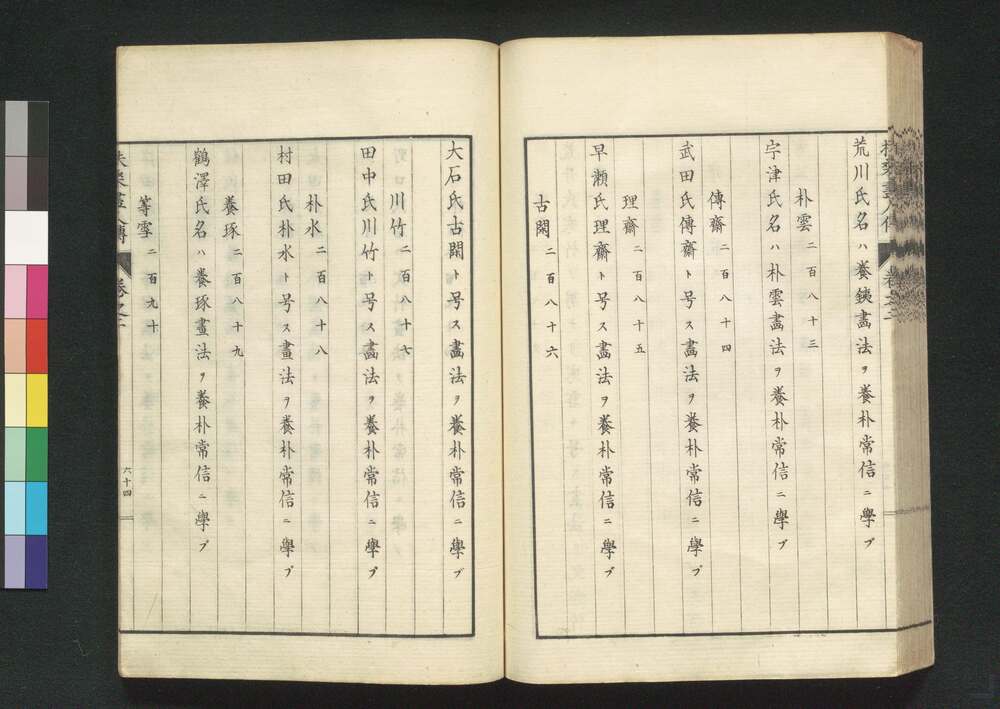 荒川氏名ハ養銕畵法ヲ養朴常信ニ學ブ
朴雲二百八十三
宇津氏名ハ朴雲畵法ヲ養朴常信ニ學ブ
傳齋二百八十四
武田氏傳齋ト号ス畵法ヲ養朴常信ニ學ブ
理齋二百八十五
早瀬氏理齋ト号ス畵法ヲ養朴常信ニ學ブ
古閑二百八十六
大石氏古閑ト号ス畵法ヲ養朴常信ニ學ブ
川竹二百八十七
田中氏川竹ト号ス畵法ヲ養朴常信ニ學ブ
朴水二百八十八
村田氏朴水ト号ス畫法ヲ養朴常信ニ學ブ
養琢二百八十九
鶴澤氏名ハ養琢畫法ヲ養朴常信ニ學ブ
等雪二百九十
六十四